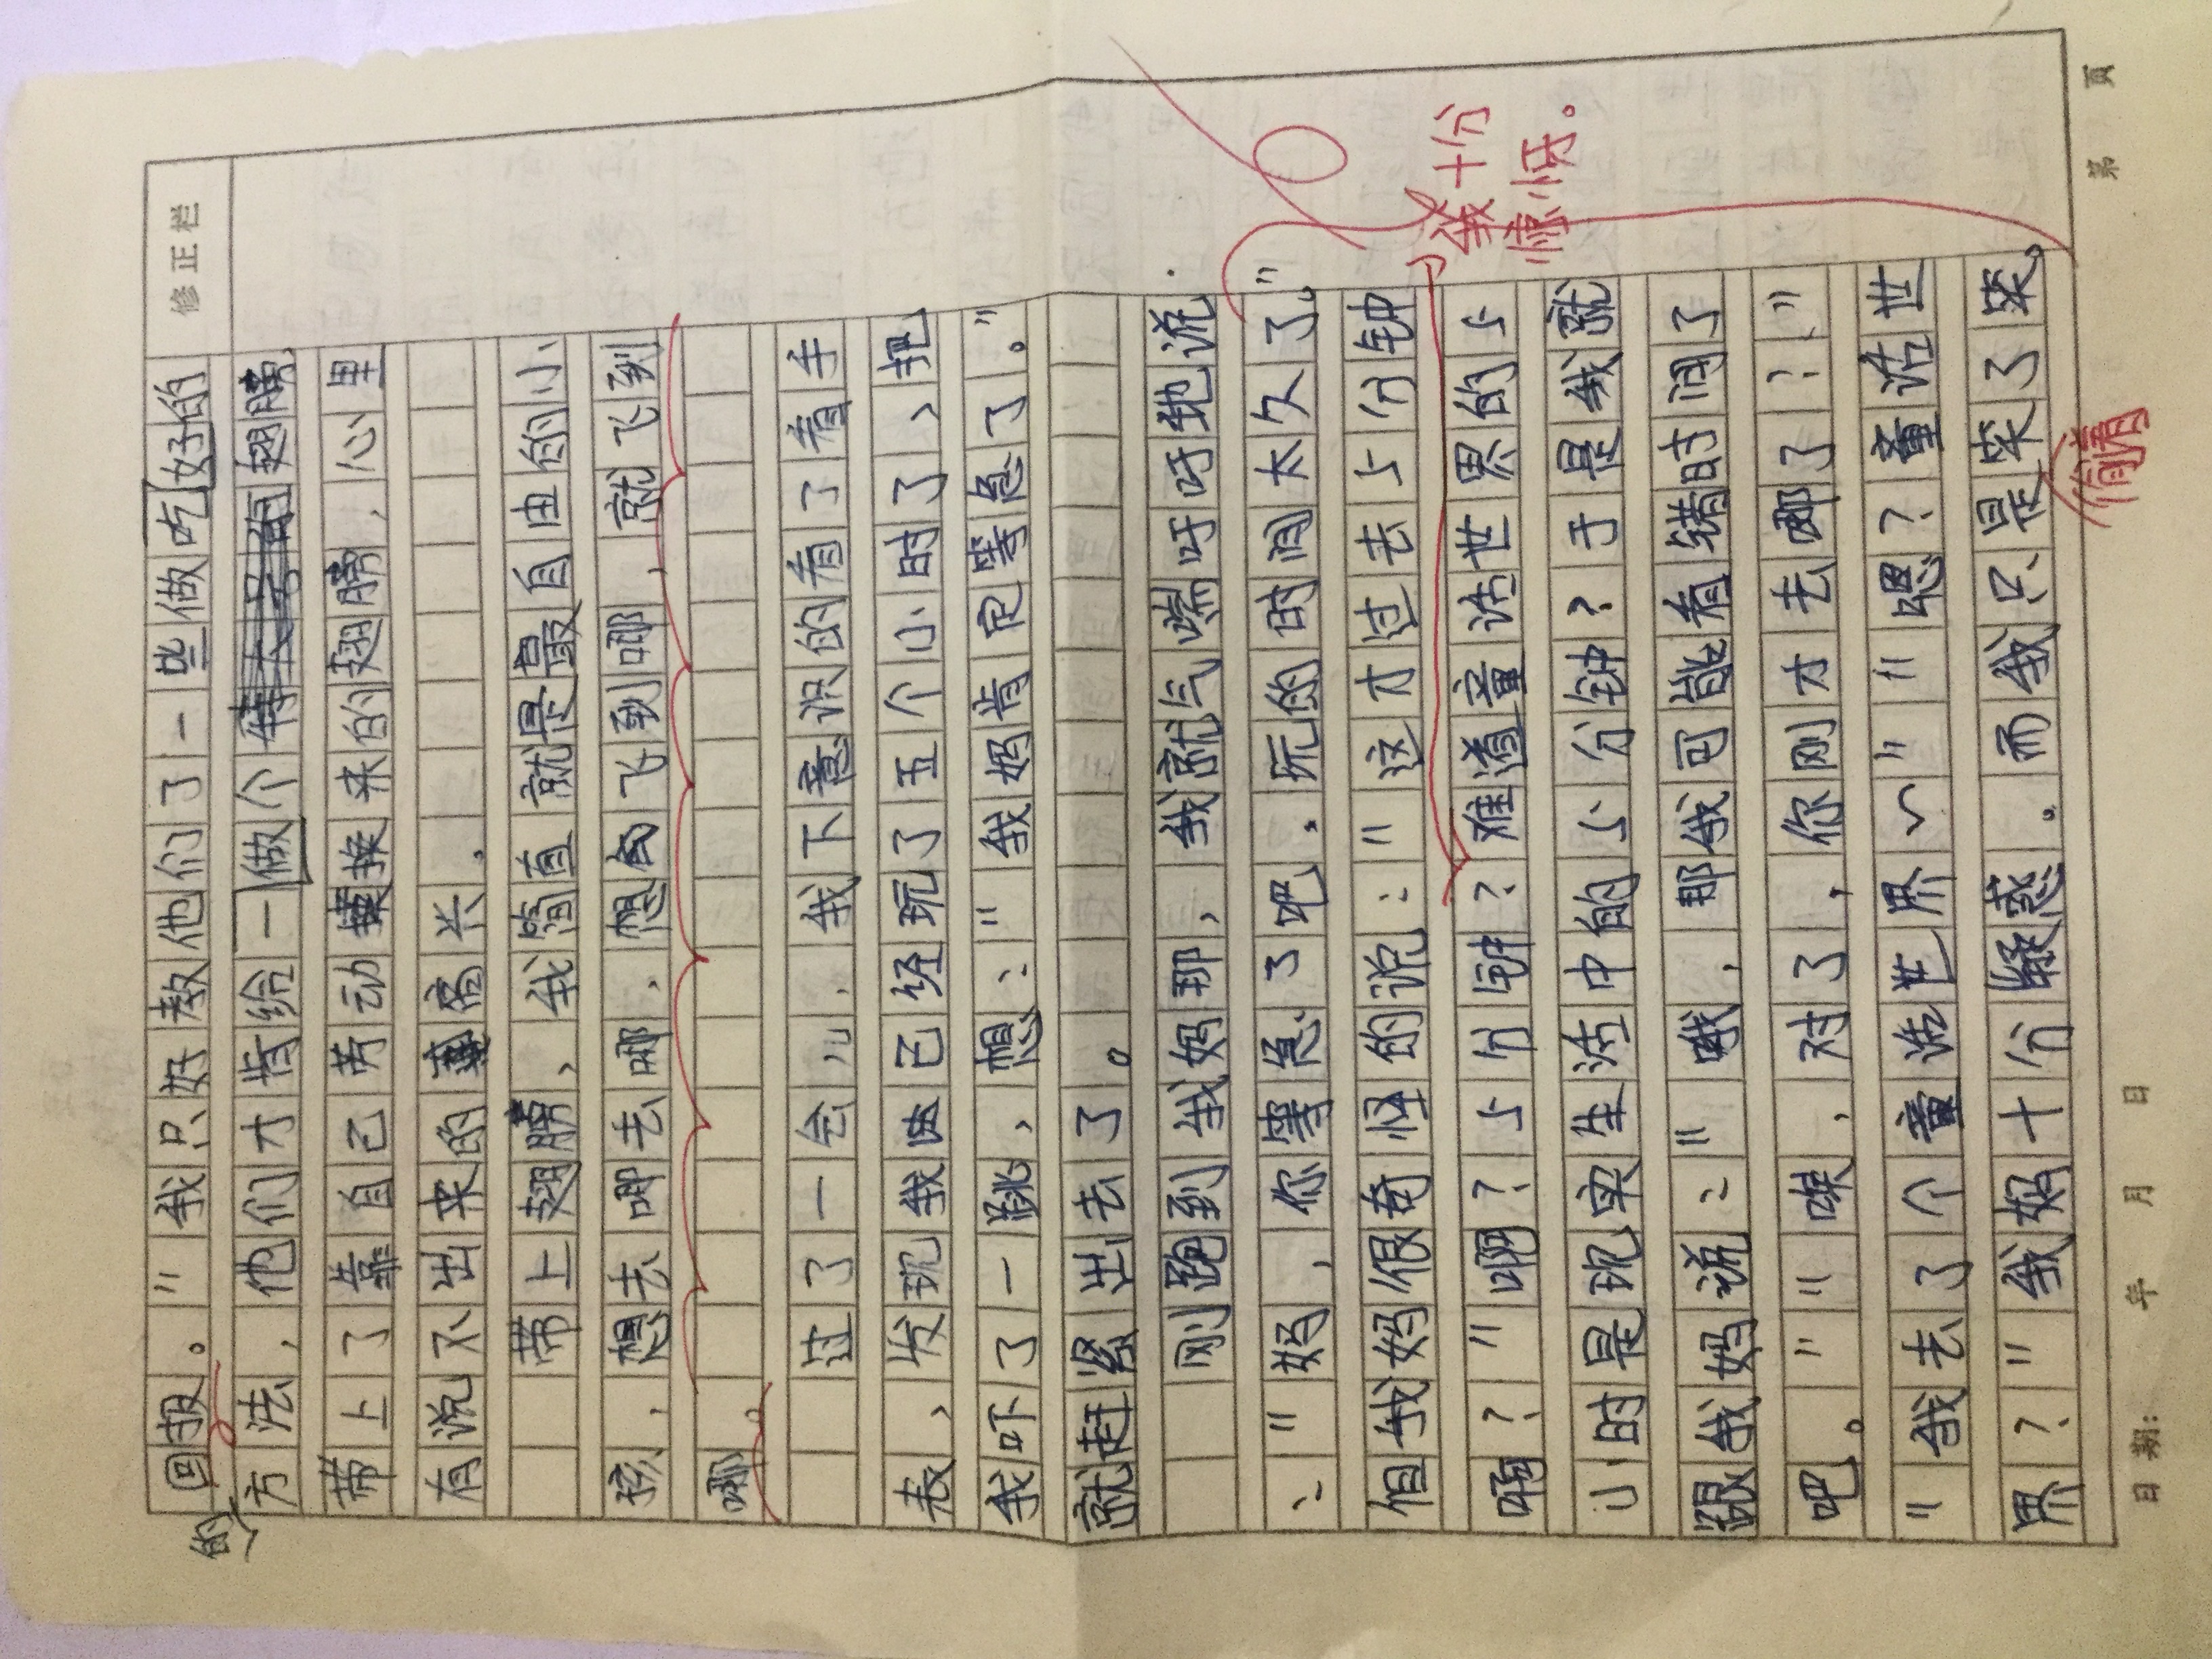 修正栏
回报。"我只好教他们了一些做吃好的
的
方法,他们才肯给一做个翅膀
带上了靠自己劳动换来的翅膀,心里
有说不出来的高兴。
带上翅膀、我简直就是最自由的小
孩,想去哪去哪,想飞到哪,就飞到
哪。
过了一会儿,我下意识的看了看手
表、发现我已经玩了五个小时了、把
我吓了一跳、想:"我妈肯定等急了。"
就赶紧出去了。
刚跑到我妈那,我就气喘吁吁地说
:"妈,你等急了吧。玩的时间太久了。"
但我妈很奇怪的说:"这才过去5分钟
啊?""啊?5分钟?难道童话世界的5
我十分
惊讶。
小时是现实生活中的5分钟?于是我就
跟我妈说:"哦,那我可能看错时间了
吧。""唉,对了,你刚才去哪了?"
"我去了个童话世界~""嗯?童话世
界?"我妈十分疑惑。而我只是笑了笑。
偷偷
日期: 年 月 日 第 页